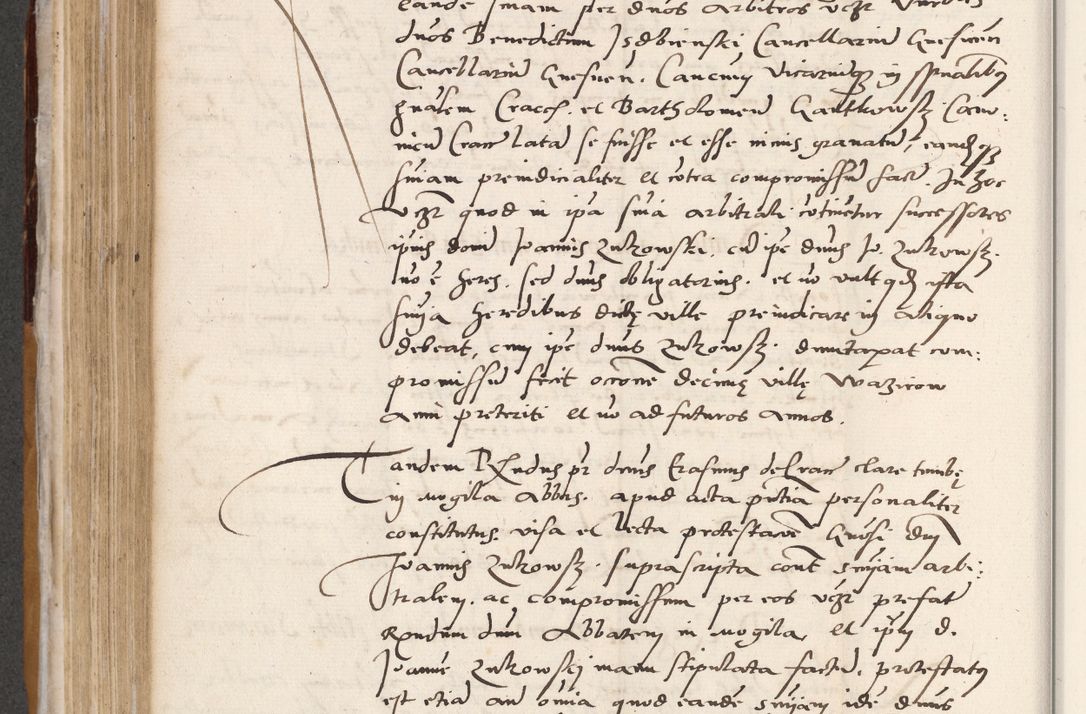 lande suam per dnos arbitros
dnos Benedictum Isdbienski Cancellarium Gnesnen
Cancellarium Gnesnen. Cancum vicariumq in spualibq
gnalem Cracof. et Bartholomeum Gantkowsky Cano:
nicum Crac lata se fuisse et esse nimis granatum, eandq
sniam preiudicialiter et cotra compromissum fact. In hoc
vczr quod in ipa snia arbitrali cotinetur successores
ipius domi Joannis Zukowski, cu ipe dnus Jo. Zukowsky
no e heres, sed dnus obligatorius. et no vult qd ista
snia heredibus dicte ville preiudicare in aliquo
debeat, cum ipe dnus Zukowsky dumtaxat com:
promissum fecit occone decime ville Wazirow
anni preteriti et no ad futuros annos.
Tandem Rndus pr dnus Erasmus de Crac clare tumbe
in mogila abbas. apud acta pntia personaliter
constitutus, visa et lecta protestacoe Gnosi dni
Joannis Zukowsky. suprascripta cont sniam arbi:
tralem. ac compromissum per eos vczr prefat
Rndum dnum Abbatem in mogila, et ipm d.
Joanne Zukowski manu stipulata factum, protestatq
est etia an omia quod eande sniam ide dnus